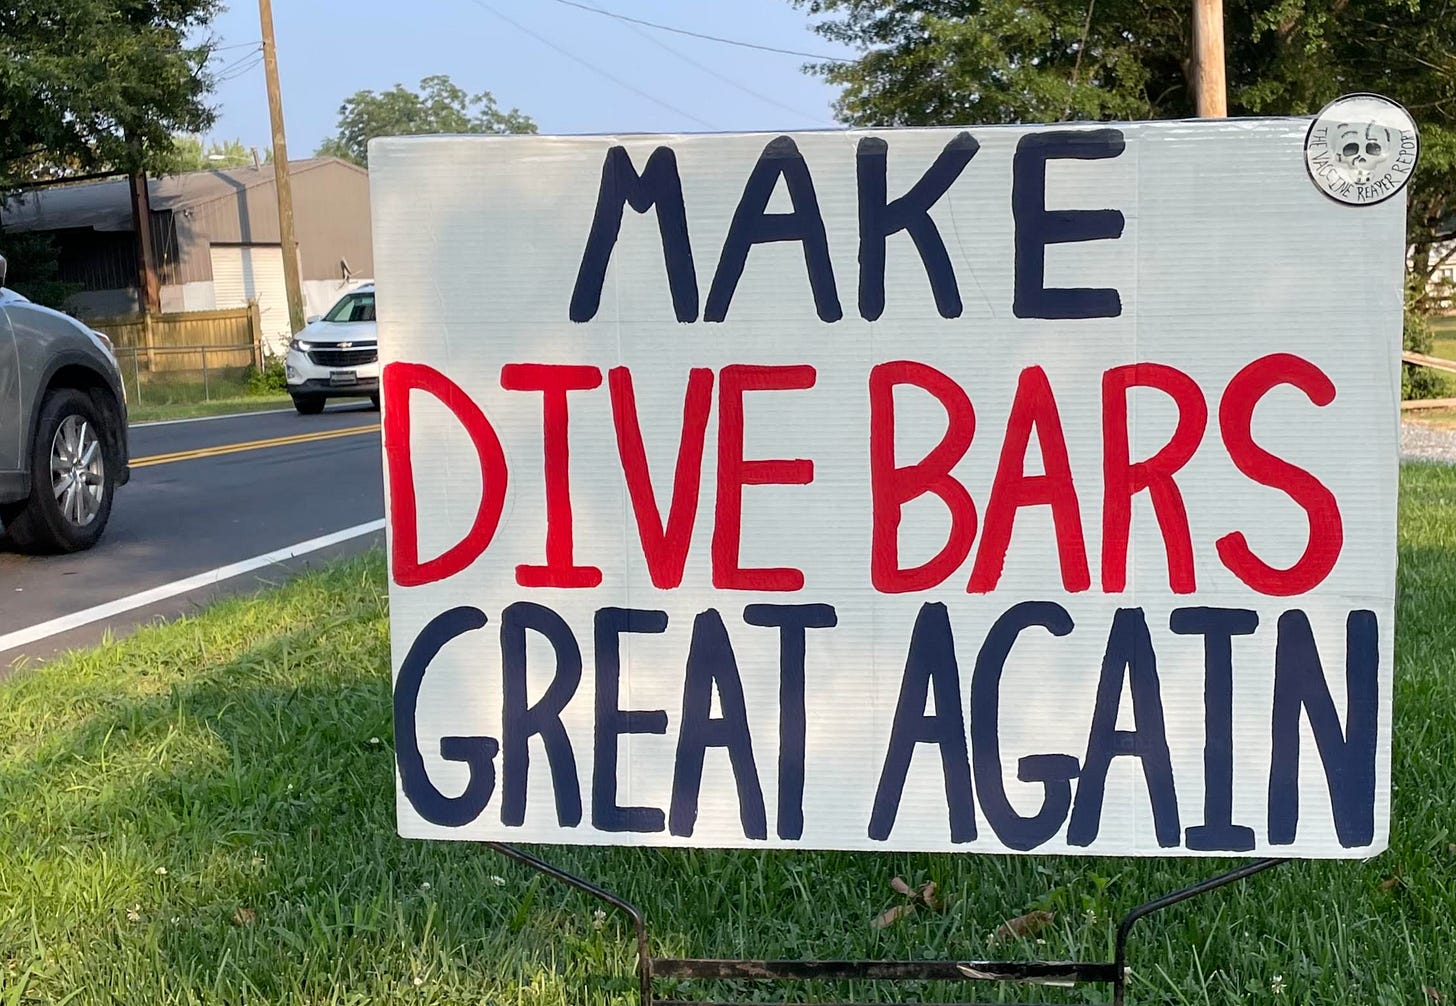 MAKE
DIVE BARS
GREAT AGAIN
THE VACCINE REAPER REPORT